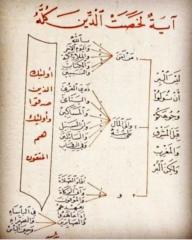 آية لخصت الدين كله
ليس البر
أن تولوا
وجوهكم
قبل المشرق
والمغرب
ولكن البر
من آمن
بالله
واليوم الآخر
والملائكة
والكتاب
والنبيين
وآتى المال
على حبه
ذوي القربى
واليتامى
والمساكين
وابن السبيل
والسائلين
وفي الرقاب
و
وأقام الصلاة
وآتى الزكاة
والموفون بعهدهم
إذا عاهدوا
والصابرين
في البأساء
والضراء
وحين البأس
أولئك
الذين
صدقوا
وأولئك
هم
المتقون